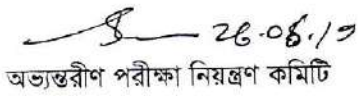 26.05.19
অভ্যন্তরীণ পরীক্ষা নিয়ন্ত্রণ কমিটি